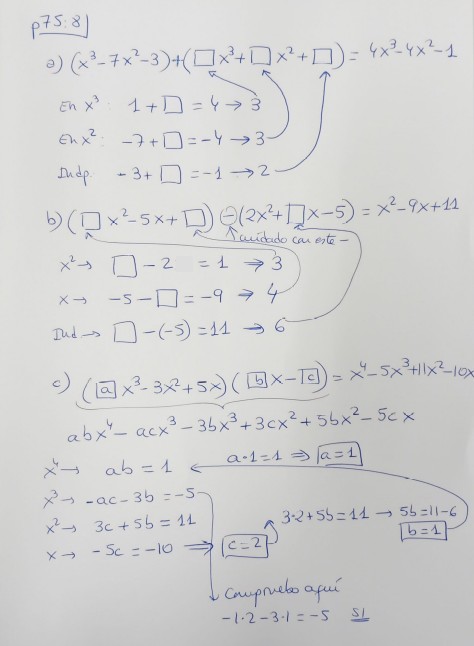 p75:8)
a) (x³-7x²-3)+(□x³+□x²+□) = 4x³-4x²-1
En x³: 1+□=4→3
En x²: -7+□=-4→3
Indp. -3+□=-1→2
b) (□x²-5x+□)-(2x²+□x-5) = x²-9x+11
cuidado con este -
x²→ □-2 = 1 ⇒ 3
x→ -5-□=-9 ⇒ 4
Ind→ □-(-5)=11 ⇒ 6
c) (a x³-3x²+5x)(b x-c) = x⁴-5x³+11x²-10x
abx⁴-acx³-3bx³+3cx²+5bx²-5cx
x⁴→ ab=1 a·1=1 ⇒ a=1
x³→ -ac-3b=-5
x²→ 3c+5b=11 3·2+5b=11 → 5b=11-6
x→ -5c=-10 ⇒ c=2 b=1
Compruebo aquí
-1·2-3·1=-5 SI